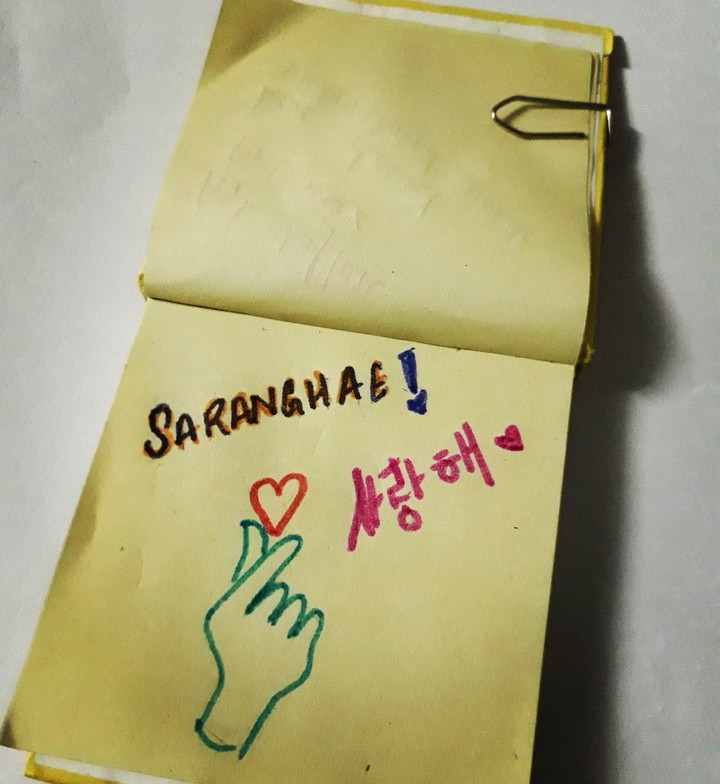 SARANGHAE!
사랑해